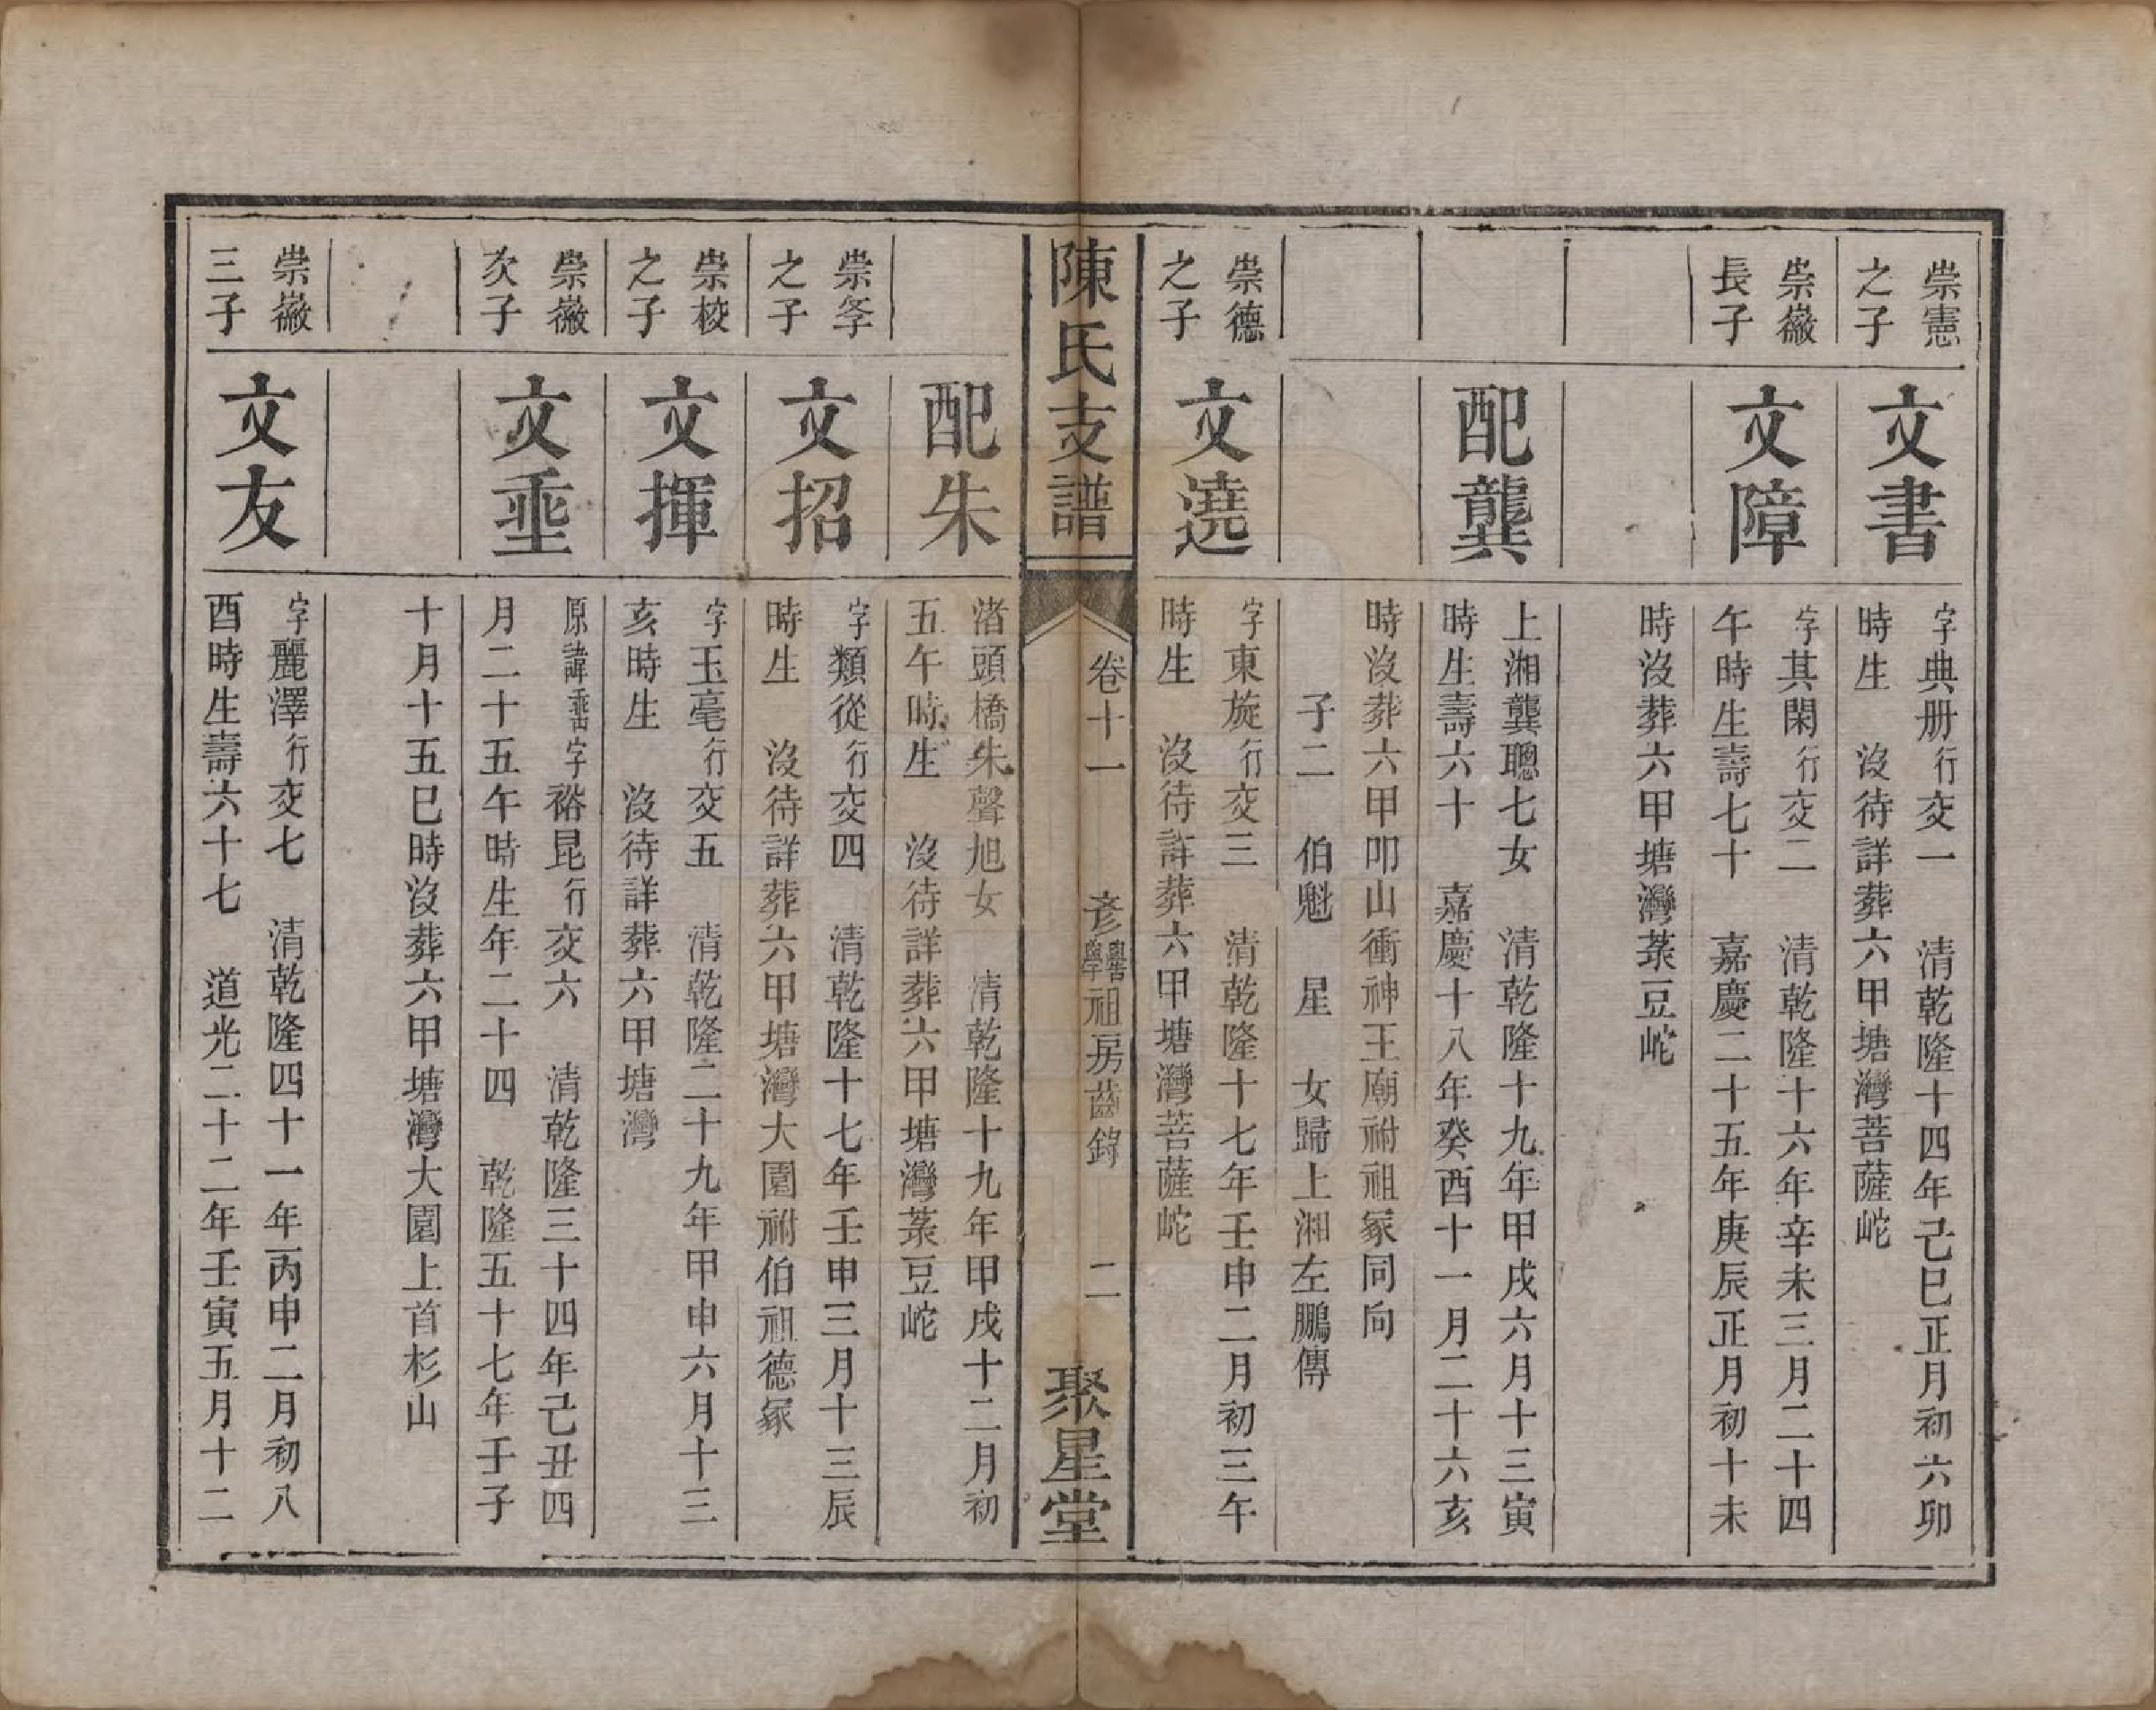 崇憲
之子
文書
字典册行文一　清乾隆十四年己巳正月初六卯
時生　沒待詳葬六甲塘灣菩薩𡶇
崇嶶
長子
文障
字其閑行文二　清乾隆十六年辛未三月二十四
午時生壽七十　嘉慶二十五年庚辰正月初十未
時沒葬六甲塘灣菉豆𡶇
配龔
上湘龔聰七女　清乾隆十九年甲戌六月十三寅
時生壽六十　嘉慶十八年癸酉十一月二十六亥
時沒葬六甲叩山衝神王廟祔祖冢同向
子二　伯魁　星　女歸上湘左鵬傳
崇德
之子
文遶
字東旋行文三　清乾隆十七年壬申二月初三午
時生　沒待詳葬六甲塘灣菩薩𡶇
陳氏支譜
卷十一
彥譽學祖房齒錄　二
聚星堂
配朱
渚頭橋朱聲旭女　清乾隆十九年甲戌十二月初
五午時生　沒待詳葬六甲塘灣菉豆𡶇
崇㝈
之子
文招
字類從行文四　清乾隆十七年壬申三月十三辰
時生　沒待詳葬六甲塘灣大園祔伯祖德冢
崇校
之子
文揮
字玉毫行文五　清乾隆二十九年甲申六月十三
亥時生　沒待詳葬六甲塘灣
崇嶶
次子
文埀
原諱字裕昆行文六　清乾隆三十四年己丑四
月二十五午時生年二十四　乾隆五十七年壬子
十月十五巳時沒葬六甲塘灣大園上首杉山
崇嶶
三子
文友
字麗澤行文七　清乾隆四十一年丙申二月初八
酉時生壽六十七　道光二十二年壬寅五月十二